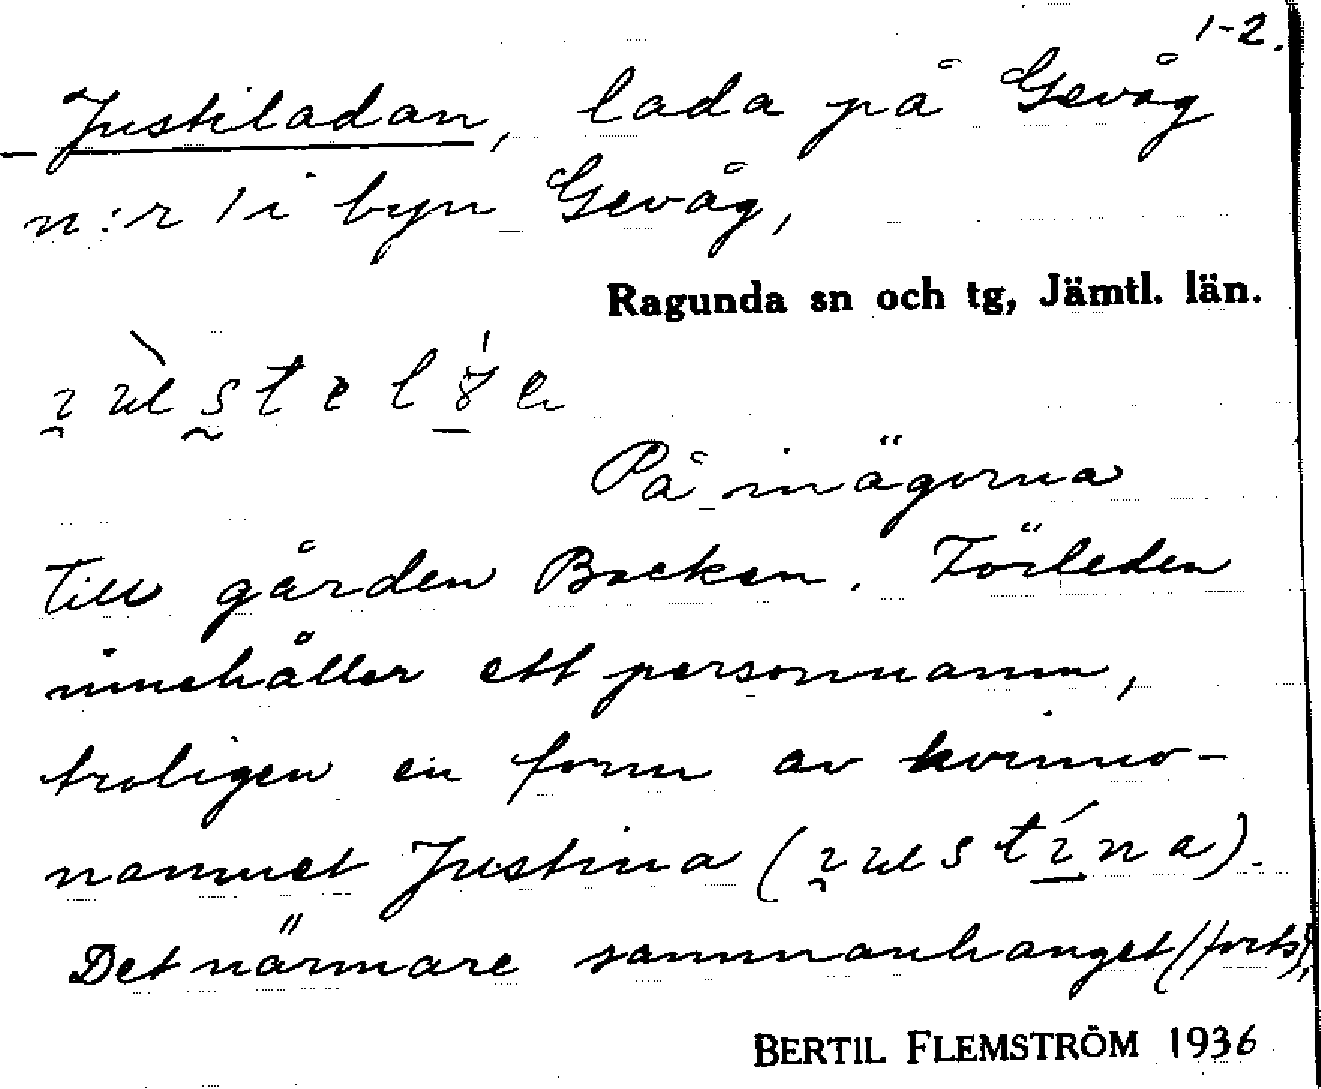 1-2.
Justiladan, lada på Gevåg
n:r 1 i byn Gevåg,
Ragunda sn och tg, Jämtl. län.
På inägorna
till gården Backen. Förleden
innehåller ett personnamn,
troligen en form av kvinno-
namnet Justina (ɿustína).
Det närmare sammanhanget (forts),
BERTIL FLEMSTRÖM 1936